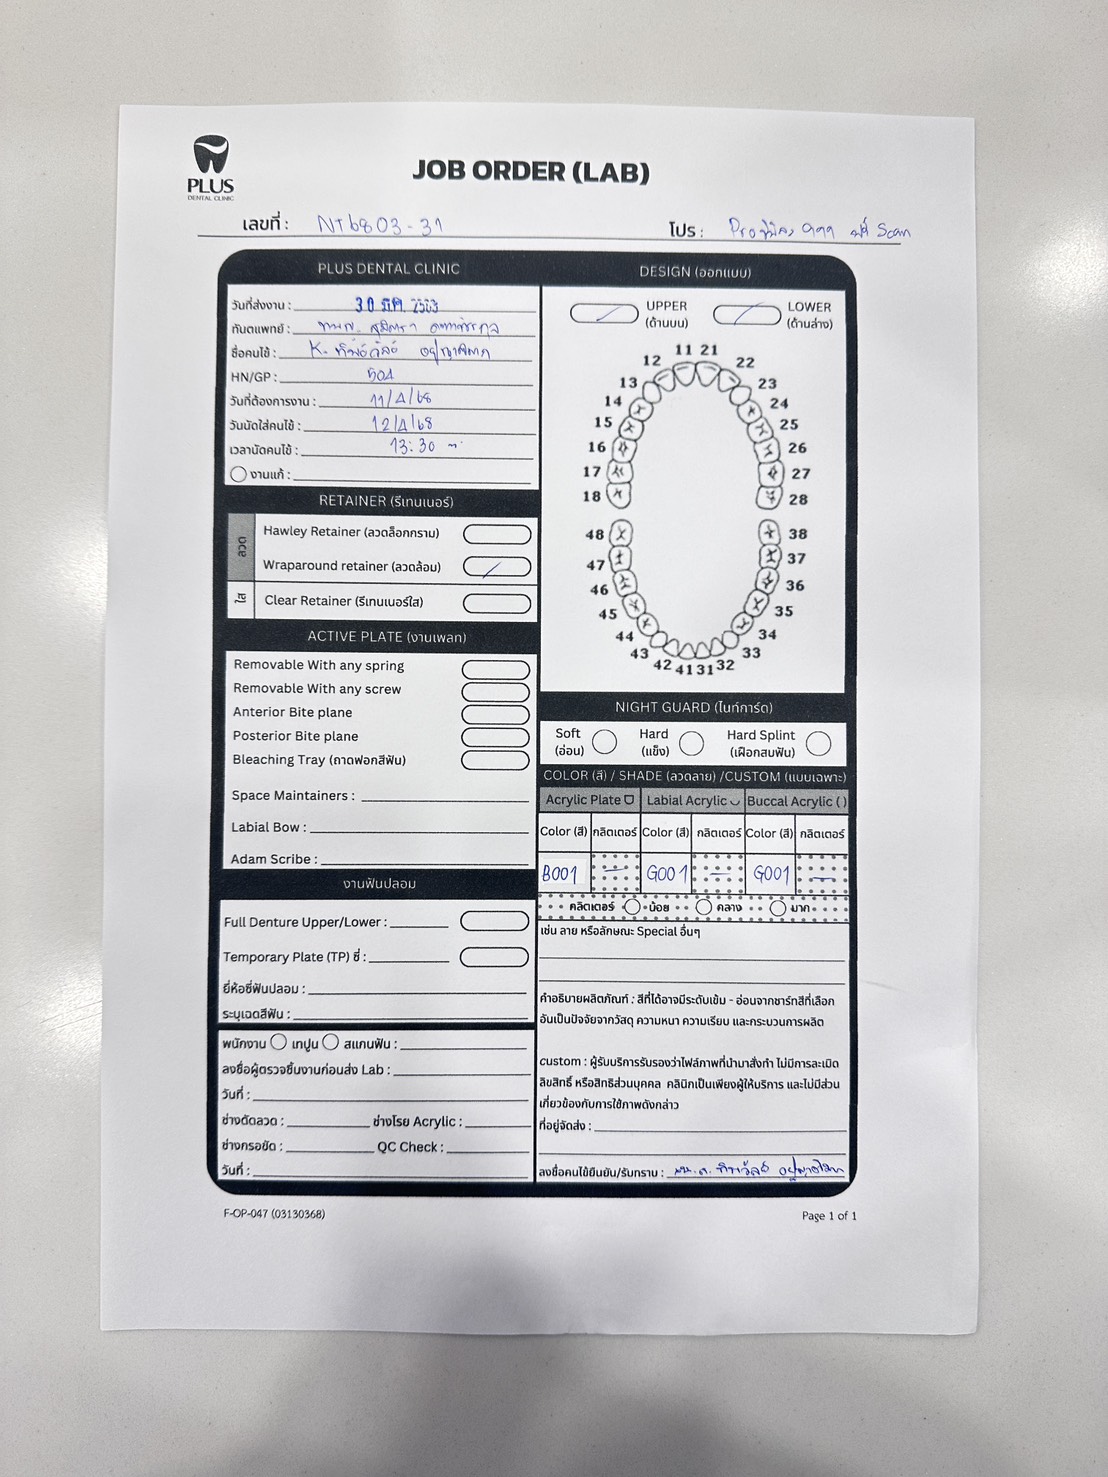 PLUS
DENTAL CLINIC
JOB ORDER (LAB)
เลขที่ : NT6803-31
โปร : Pro Scan
PLUS DENTAL CLINIC
วันที่ส่งงาน : 30 มี.ค.
ทันตแพทย์ :
ชื่อคนไข้ : K.
HN/GP : 504
วันที่ต้องการงาน : 11/4/68
วันนัดใส่คนไข้ : 12/4/68
เวลานัดคนไข้ : 13:30 น.
งานแก้ :
RETAINER (รีเทนเนอร์)
ลวด
Hawley Retainer (ลวดล็อกกราม)
Wraparound retainer (ลวดล้อม)
ใส
Clear Retainer (รีเทนเนอร์ใส)
ACTIVE PLATE (งานเพลท)
Removable With any spring
Removable With any screw
Anterior Bite plane
Posterior Bite plane
Bleaching Tray (ถาดฟอกสีฟัน)
Space Maintainers :
Labial Bow :
Adam Scribe :
งานฟันปลอม
Full Denture Upper/Lower :
Temporary Plate (TP) ซี่ :
ยี่ห้อซี่ฟันปลอม :
ระบุเฉดสีฟัน :
พนักงาน เทปูน สแกนฟัน :
ลงชื่อผู้ตรวจชิ้นงานก่อนส่ง Lab :
วันที่ :
ช่างดัดลวด : ช่างโรย Acrylic :
ช่างกรอขัด : QC Check :
วันที่ :
DESIGN (ออกแบบ)
UPPER
(ด้านบน)
LOWER
(ด้านล่าง)
11 21
12 22
13 23
14 24
15 25
16 26
17 27
18 28
48 38
47 37
46 36
45 35
44 34
43 33
42 41 31 32
NIGHT GUARD (ไนท์การ์ด)
Soft
(อ่อน)
Hard
(แข็ง)
Hard Splint
(เฝือกสบฟัน)
COLOR (สี) / SHADE (ลวดลาย) /CUSTOM (แบบเฉพาะ)
Acrylic Plate Labial Acrylic Buccal Acrylic ( )
Color (สี) กลิตเตอร์ Color (สี) กลิตเตอร์ Color (สี) กลิตเตอร์
B001 — G001 — G001 —
กลิตเตอร์ น้อย กลาง มาก
เช่น ลาย หรือลักษณะ Special อื่นๆ
คำอธิบายผลิตภัณฑ์ : สีที่ได้อาจมีระดับเข้ม - อ่อนจากชาร์ทสีที่เลือก
อันเป็นปัจจัยจากวัสดุ ความหนา ความเรียบ และกระบวนการผลิต
custom : ผู้รับบริการรับรองว่าไฟล์ภาพที่นำมาสั่งทำ ไม่มีการละเมิด
ลิขสิทธิ์ หรือสิทธิส่วนบุคคล คลินิกเป็นเพียงผู้ให้บริการ และไม่มีส่วน
เกี่ยวข้องกับการใช้ภาพดังกล่าว
ที่อยู่จัดส่ง :
ลงชื่อคนไข้ยืนยัน/รับทราบ :
F-OP-047 (03130368)
Page 1 of 1